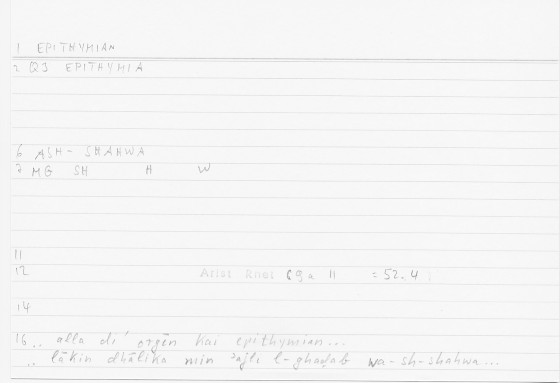 1 EPITHYMIAN
2 Q3 EPITHYMIA
6 ASH- SHAHWA
7 MG SH H W
11
12 Arist Rhet 69a 11 = 52.4
14
16 .. alla di' orgēn kai epithymian...
.. lākin dhālika min ʾajli l-ghaḍab wa-sh-shahwa...